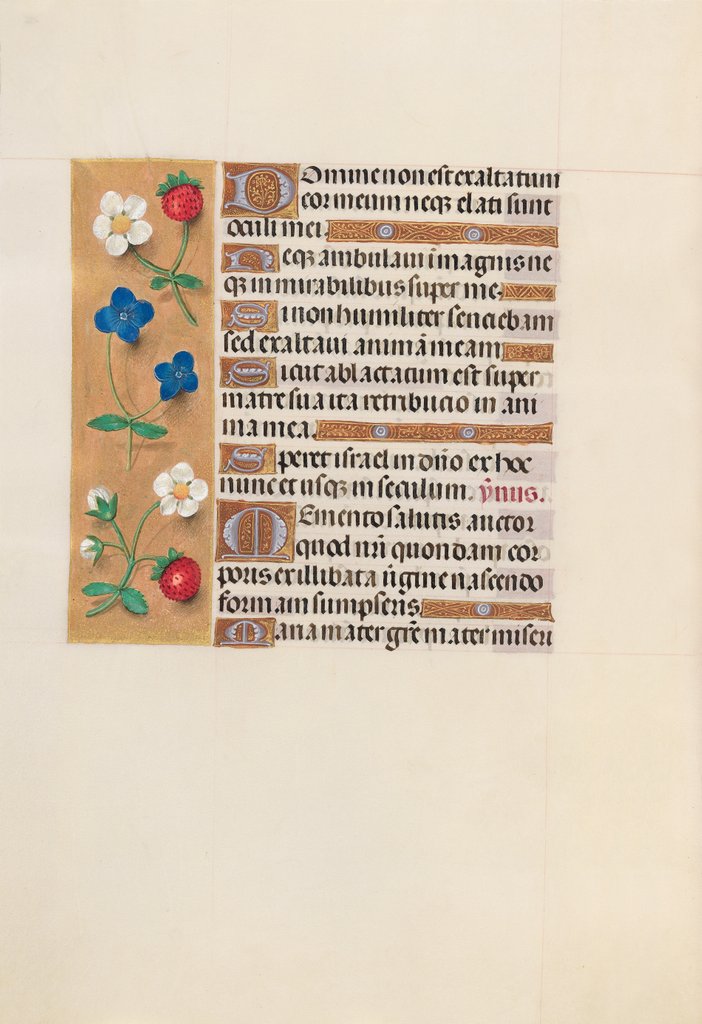 Domine non est exaltatum
cor meum neqꝫ elati sunt
oculi mei.
Neqꝫ ambulaui ī magnis ne
qꝫ in mirabilibus super me.
Si non humiliter senciebam
sed exaltaui animā meam
Sicut ablactatum est super
matre sua ita retribucio in ani
ma mea.
Speret israel in dn̄o ex hoc
nunc et usqꝫ in seculum. ȳnus.
Memento salutis auctor
quod nr̄i quondam cor
poris ex illibata ūgine nascendo
formam sumpseris
Maria mater grē mater miseri